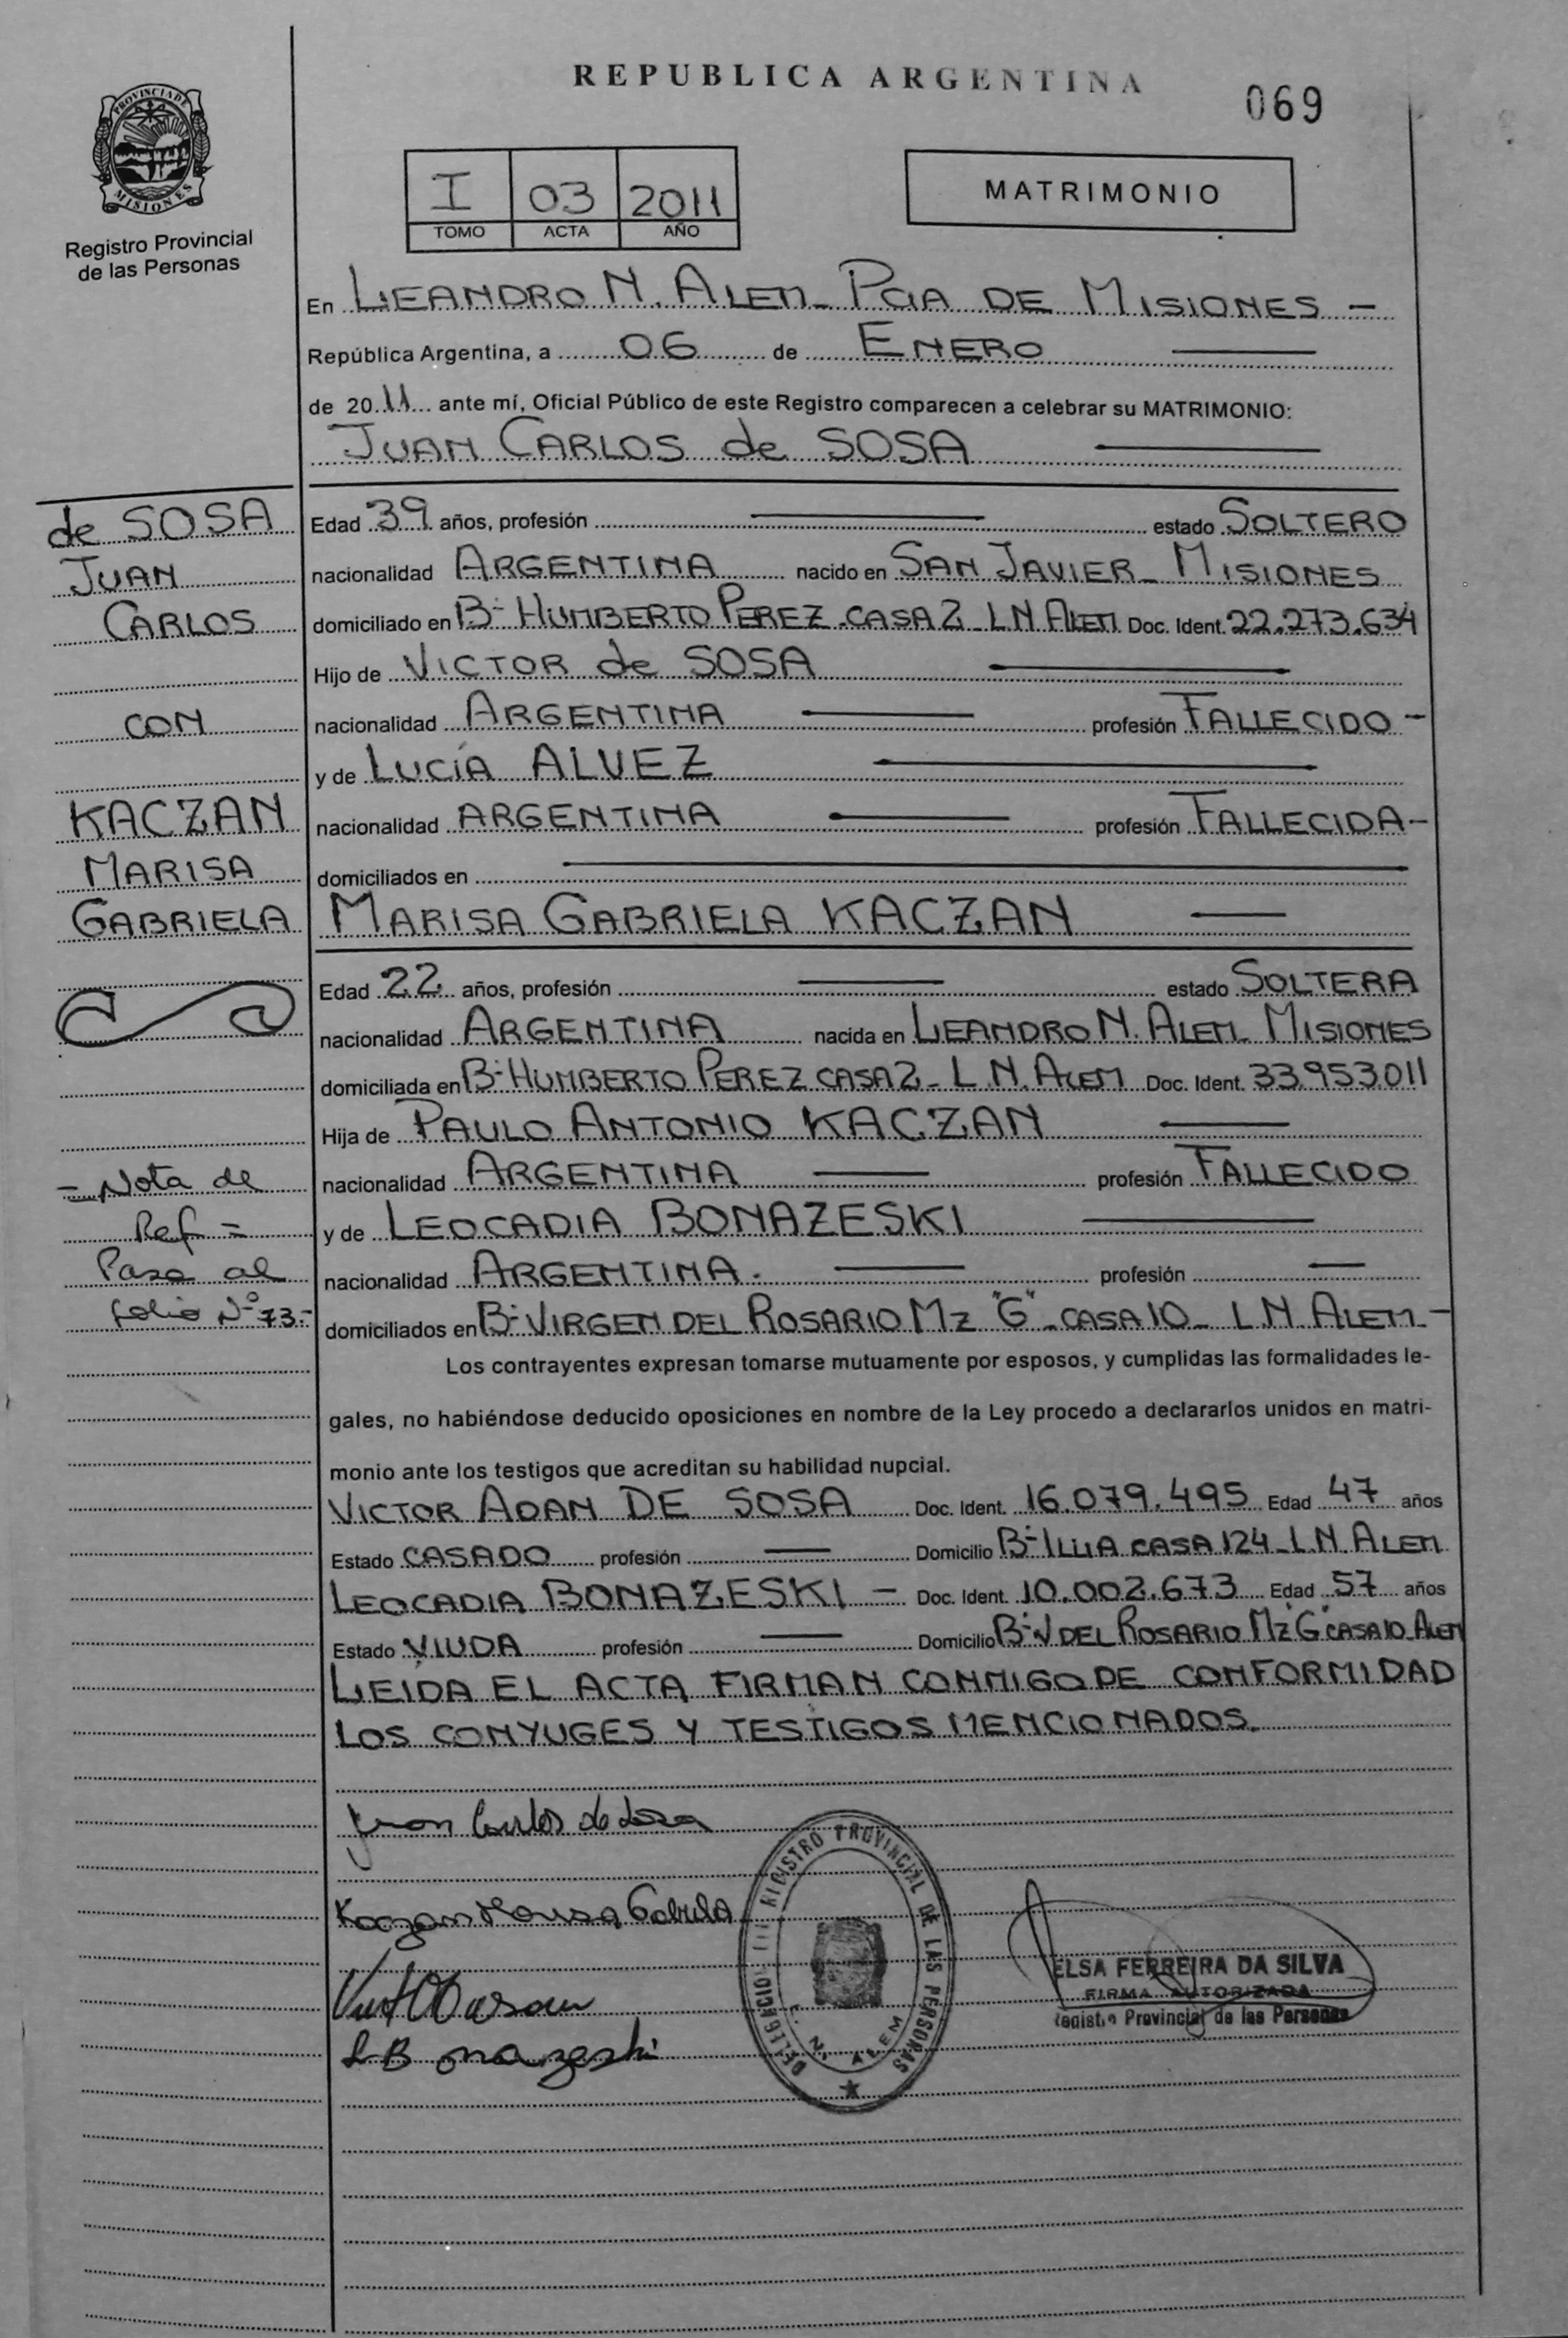 REPUBLICA ARGENTINA
069
PROVINCIA DE
MISIONES
Registro Provincial
de las Personas
I 03 2011
TOMO ACTA AÑO
MATRIMONIO
En LEANDRO N. ALEM - PCIA DE MISIONES -
República Argentina, a 06 de ENERO
de 2011 ante mí, Oficial Público de este Registro comparecen a celebrar su MATRIMONIO:
JUAN CARLOS de SOSA
de SOSA
JUAN
CARLOS
CON
KACZAN
MARISA
GABRIELA
Edad 39 años, profesión — estado SOLTERO
nacionalidad ARGENTINA nacido en SAN JAVIER - MISIONES
domiciliado en Bº HUMBERTO PEREZ - CASA 2 - L N ALEM Doc. Ident. 22.273.634
Hijo de VICTOR de SOSA
nacionalidad ARGENTINA — profesión FALLECIDO -
y de LUCÍA ALVEZ
nacionalidad ARGENTINA — profesión FALLECIDA -
domiciliados en
MARISA GABRIELA KACZAN
Edad 22 años, profesión — estado SOLTERA
nacionalidad ARGENTINA nacida en LEANDRO N. ALEM - MISIONES
domiciliada en Bº HUMBERTO PEREZ CASA 2 - L.N. ALEM Doc. Ident. 33.953.011
Hija de PAULO ANTONIO KACZAN
nacionalidad ARGENTINA — profesión FALLECIDO
y de LEOCADIA BONAZESKI
nacionalidad ARGENTINA. — profesión —
domiciliados en Bº VIRGEN DEL ROSARIO MZ "G" - CASA 10 - L N ALEM -
- Nota de
Ref =
Pasa al
folio Nº 73 -
Los contrayentes expresan tomarse mutuamente por esposos, y cumplidas las formalidades le-
gales, no habiéndose deducido oposiciones en nombre de la Ley procedo a declararlos unidos en matri-
monio ante los testigos que acreditan su habilidad nupcial.
VICTOR ADAN DE SOSA Doc. Ident. 16.079.495 Edad 47 años
Estado CASADO profesión — Domicilio Bº ILLIA CASA 124 - L.N. ALEM
LEOCADIA BONAZESKI - Doc. Ident. 10.002.673 Edad 57 años
Estado VIUDA profesión — Domicilio Bº V DEL ROSARIO MZ "G" CASA 10 - ALEM
LEIDA EL ACTA FIRMAN CONMIGO DE CONFORMIDAD
LOS CONYUGES Y TESTIGOS MENCIONADOS.
Juan Carlos de Sosa
Kaczan Marisa Gabriela
L B onazeski
REGISTRO PROVINCIAL DE LAS PERSONAS
L. N. ALEM
ELSA FERREIRA DA SILVA
FIRMA AUTORIZADA
Registro Provincial de las Personas